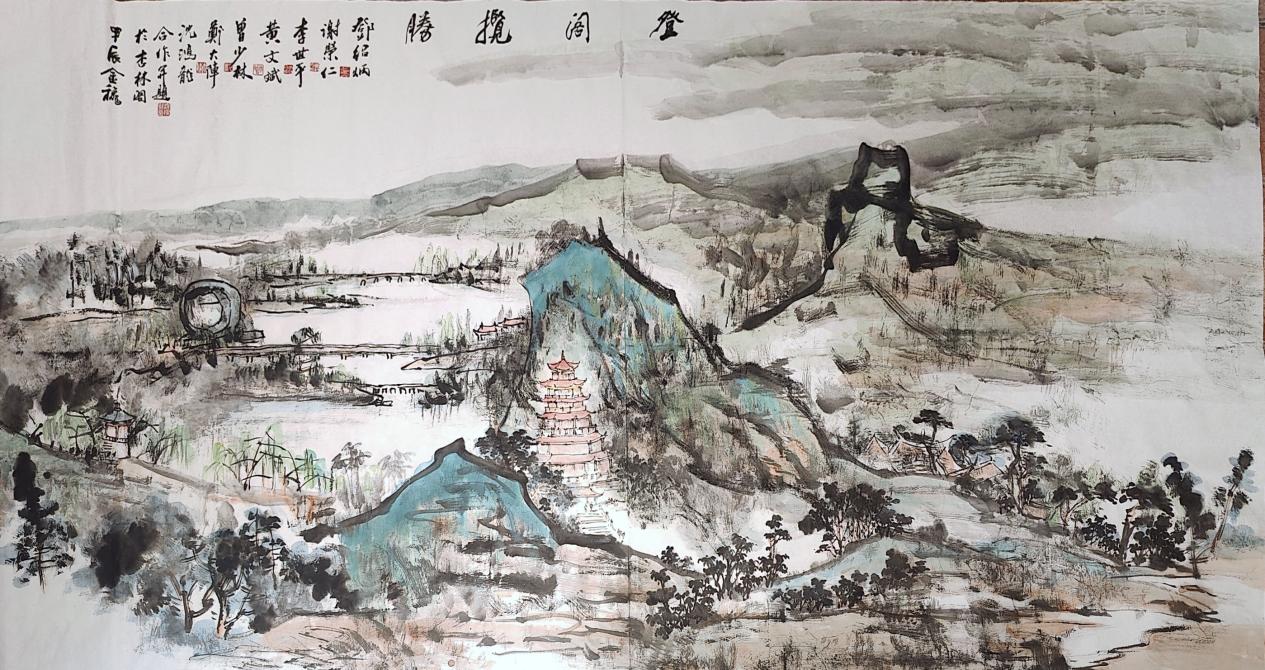 登阁揽勝
鄧绍炳
谢荣仁
李世平
黄文斌
曾少林
郑大阵
沈鸿龍
合作并题
於杏林阁
甲辰金秋